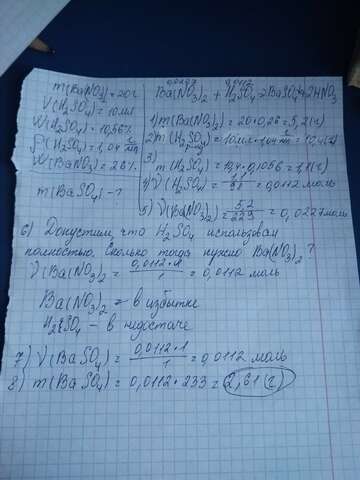 m(BaNO3)=20г
V(H2SO4)=10мл
W(H2SO4)=10,56%
ρ(H2SO4)=1,04 г/мл
W(BaNO3)=26%
m(BaSO4)-?
0,0227 0,0112
Ba(NO3)2 + H2SO4 → BaSO4 + 2HNO3
1) m(BaNO3)2 = 20·0,26 = 5,2(г)
2) m(H2SO4) = 10мл·1,04 г/мл = 10,4(г)
3) m(H2SO4) = 10,4·0,1056 = 1,1(г)
4) ν(H2SO4) = 1,1/98 = 0,0112 моль
5) ν(Ba(NO3)2) = 5,2/229 = 0,0227 моль
6) Допустим что H2SO4 использовал
полностью. Сколько тогда нужно Ba(NO3)2?
ν(Ba(NO3)2 = 0,0112·1/1 = 0,0112 моль
Ba(NO3)2 = в избытке
H2SO4 - в недостаче
7) ν(BaSO4) = 0,0112·1/1 = 0,0112 моль
8) m(BaSO4) = 0,0112·233 = 2,61(г)